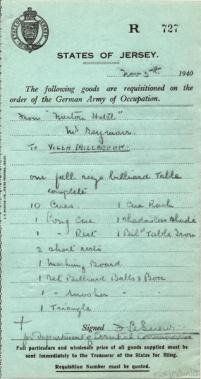 R 727
STATES OF JERSEY.
Nov 5th 1940
The following goods are requisitioned on the
order of the German Army of Occupation.
From "Merton Hotel"
Mr Seymour
To VILLA MILLBROOK
one full size billiard Table
complete
10 Cues 1 Cue Rack
1 Long Cue 1 Shadowless Shade
1 " Rest 1 Bil^d Table Iron
2 short rests
1 Marking Board
1 Set Billiard Balls & Box
1 " Smoother
1 Triangle
Signed
for Department of Essential Commodities
Full particulars and wholesale price of all goods supplied must be
sent immediately to the Treasurer of the States for filing.
Requisition Number must be quoted.